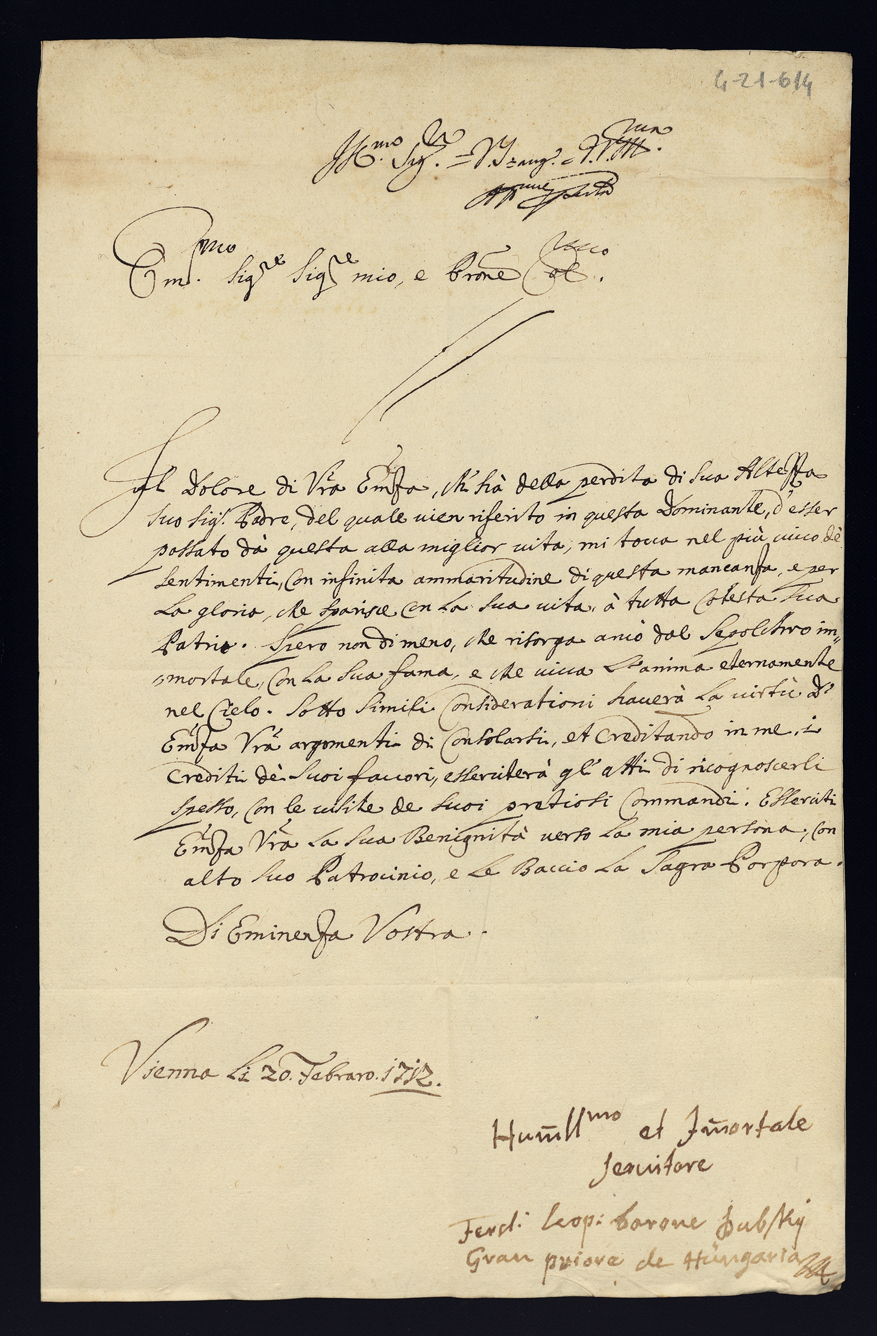 4-21-614
Ill.mo Sig.r
Em.mo Sig.re Sig.re mio, e Prone Col.mo
Il Dolore di Vra Em̃za, ch'hà della perdita di Sua Altezza
suo Sig.r Padre, del quale uien riferito in questa Dominante, d'esser
passato dà questa alla miglior uita, mi toca nel più uiuo dè
sentimenti, con infinita ammaritudine di questa mancanza, e per
La gloria, che sparisce con La sua uita, à tutta cotesta sua
Patria. Spero non di meno, che risorga anco dal Sepolchro im„
„mortale, con La sua fama, e che uiua L'anima eternamente
nel Cielo. Sotto simili considerationi hauerà La uirtù d'
Em̃za Vrã argomenti di consolarsi, et creditando in me, i
Crediti dè suoi fauori, esserciterà gl'atti di ricognoscerli
spesso, con le uisite de suoi pretiosi Commandi. Esserciti
Em̃za Vrã La sua Benignità uerso La mia persona, con
alto suo Patrocinio, e Le Baccio La Sagra Porpora.
Di Eminenza Vostra.
Vienna Li 20. Febraro. 1712.
Hum̃ll.mo et Im̃ortale
seruitore
Ferd: Leop: barone Dubsky
Gran priore de Hungaria